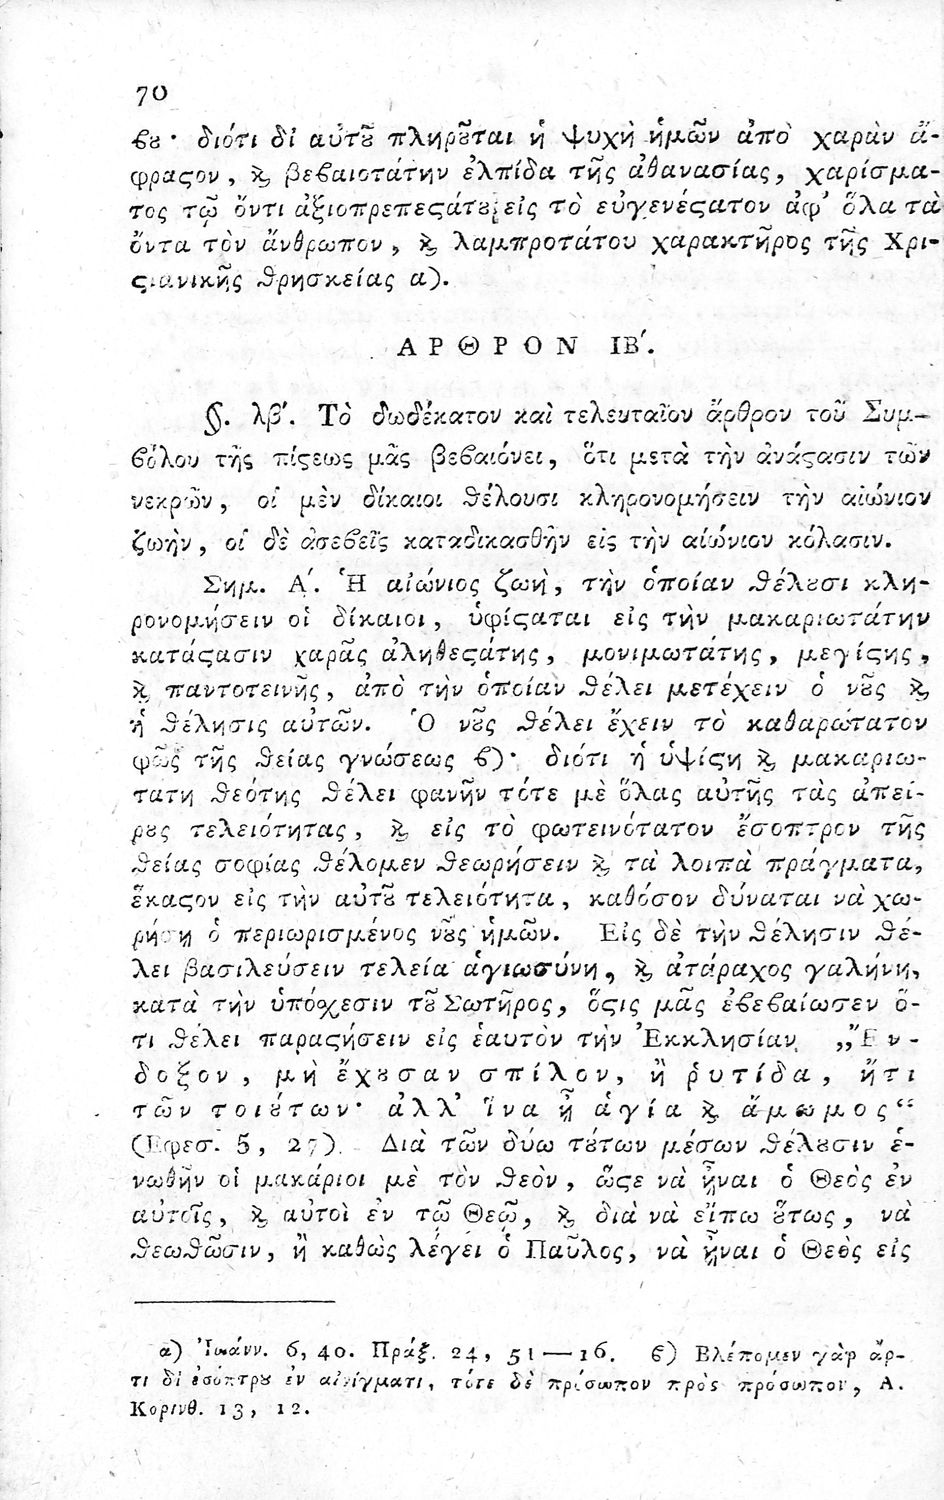 70
ϐȣ· διότι δἰ αὐτȣ͂ πληρȣ͂ται ἡ ψυχὴ ἡμῶν ἀπὸ χαρὰν ἄ-
φραϛον, ϗ βεϐαιοτάτην ἐλπίδα τῆς ἀθανασίας, χαρίσμα-
τος τῷ ὄντι ἀξιοπρεπεϛάτȣ εἰς τὸ εὐγενέϛατον ἀφ' ὅλα τὰ
ὄντα τὸν ἄνθρωπον, ϗ λαμπροτάτου χαρακτῆρος τῆς Χρι-
ϛιανικῆς ϑρησκείας α).
ΑΡΘΡΟΝ ΙΒ'.
§. λβ'. Τὸ δωδέκατον καὶ τελευταῖον ἄρθρον τοῦ Συμ-
ϐόλου τῆς πίϛεως μᾶς βεϐαιόνει, ὅτι μετὰ τὴν ἀνάϛασιν τῶν
νεκρῶν, οἱ μὲν δίκαιοι ϑέλουσι κληρονομήσειν τὴν αἰώνιον
ζωὴν, οἱ δὲ ἀσεϐεῖς καταδικασθῆν εἰς τὴν αἰώνιον κόλασιν.
Σημ. Α'. Ἡ αἰώνιος ζωὴ, τὴν ὁποίαν ϑέλȣσι κλη-
ρονομήσειν οἱ δίκαιοι, ὑφίϛαται εἰς τὴν μακαριωτάτην
κατάϛασιν χαρᾶς ἀληθεϛάτης, μονιμωτάτης, μεγίϛης,
ϗ παντοτεινῆς, ἀπὸ τὴν ὁποίαν ϑέλει μετέχειν ὁ νȣ͂ς ϗ
ἡ ϑέλησις αὐτῶν. Ὁ νȣ͂ς ϑέλει ἔχειν τὸ καθαρώτατον
φῶς τῆς ϑείας γνώσεως ϐ)· διότι ἡ ὑψίϛη ϗ μακαριω-
τάτη ϑεότης ϑέλει φανῆν τότε μὲ ὅλας αὐτῆς τὰς ἀπεί-
ρȣς τελειότητας, ϗ εἰς τὸ φωτεινότατον ἔσοπτρον τῆς
ϑείας σοφίας ϑέλομεν ϑεωρήσειν ϗ τὰ λοιπὰ πράγματα,
ἕκαϛον εἰς τὴν αὐτȣ͂ τελειότητα, καθόσον δύναται νὰ χω-
ρήσῃ ὁ περιωρισμένος νȣ͂ς ἡμῶν. Εἰς δὲ τὴν ϑέλησιν ϑέ-
λει βασιλεύσειν τελεία ἁγιωσύνη, ϗ ἀτάραχος γαλήνη,
κατὰ τὴν ὑπόχεσιν τȣ͂ Σωτῆρος, ὅϛις μᾶς ἐϐεϐαίωσεν ὅ-
τι ϑέλει παραϛήσειν εἰς ἑαυτὸν τὴν Ἐκκλησίαν „Ἔν-
δοξον, μὴ ἔχȣσαν σπίλον, ἢ ῥυτίδα, ἤτι
τῶν τοιȣ́των· ἀλλ' ἵνα ᾖ ἁγία ϗ ἄμωμος“
(Ἐφεσ. 5, 27). Διὰ τῶν δύω τȣ́των μέσων ϑέλȣσιν ἑ-
νωθῆν οἱ μακάριοι μὲ τὸν ϑεὸν, ὥϛε νὰ ᾖναι ὁ Θεὸς ἐν
αὐτοῖς, ϗ αὐτοὶ ἐν τῷ Θεῷ, ϗ διὰ νὰ εἴπω ȣ̔́τως, νὰ
ϑεωϑῶσιν, ἢ καθὼς λέγει ὁ Παῦλος, νὰ ᾖναι ὁ Θεὸς εἰς
α) Ἰωάνν. 6, 40. Πράξ. 24, 51—16. ϐ) Βλέπομεν γὰρ ἄρ-
τι δἰ ἐσόπτρȣ ἐν αἰνίγματι, τότε δὲ πρόσωπον πρὸς πρόσωπον, Α.
Κορινθ. 13, 12.